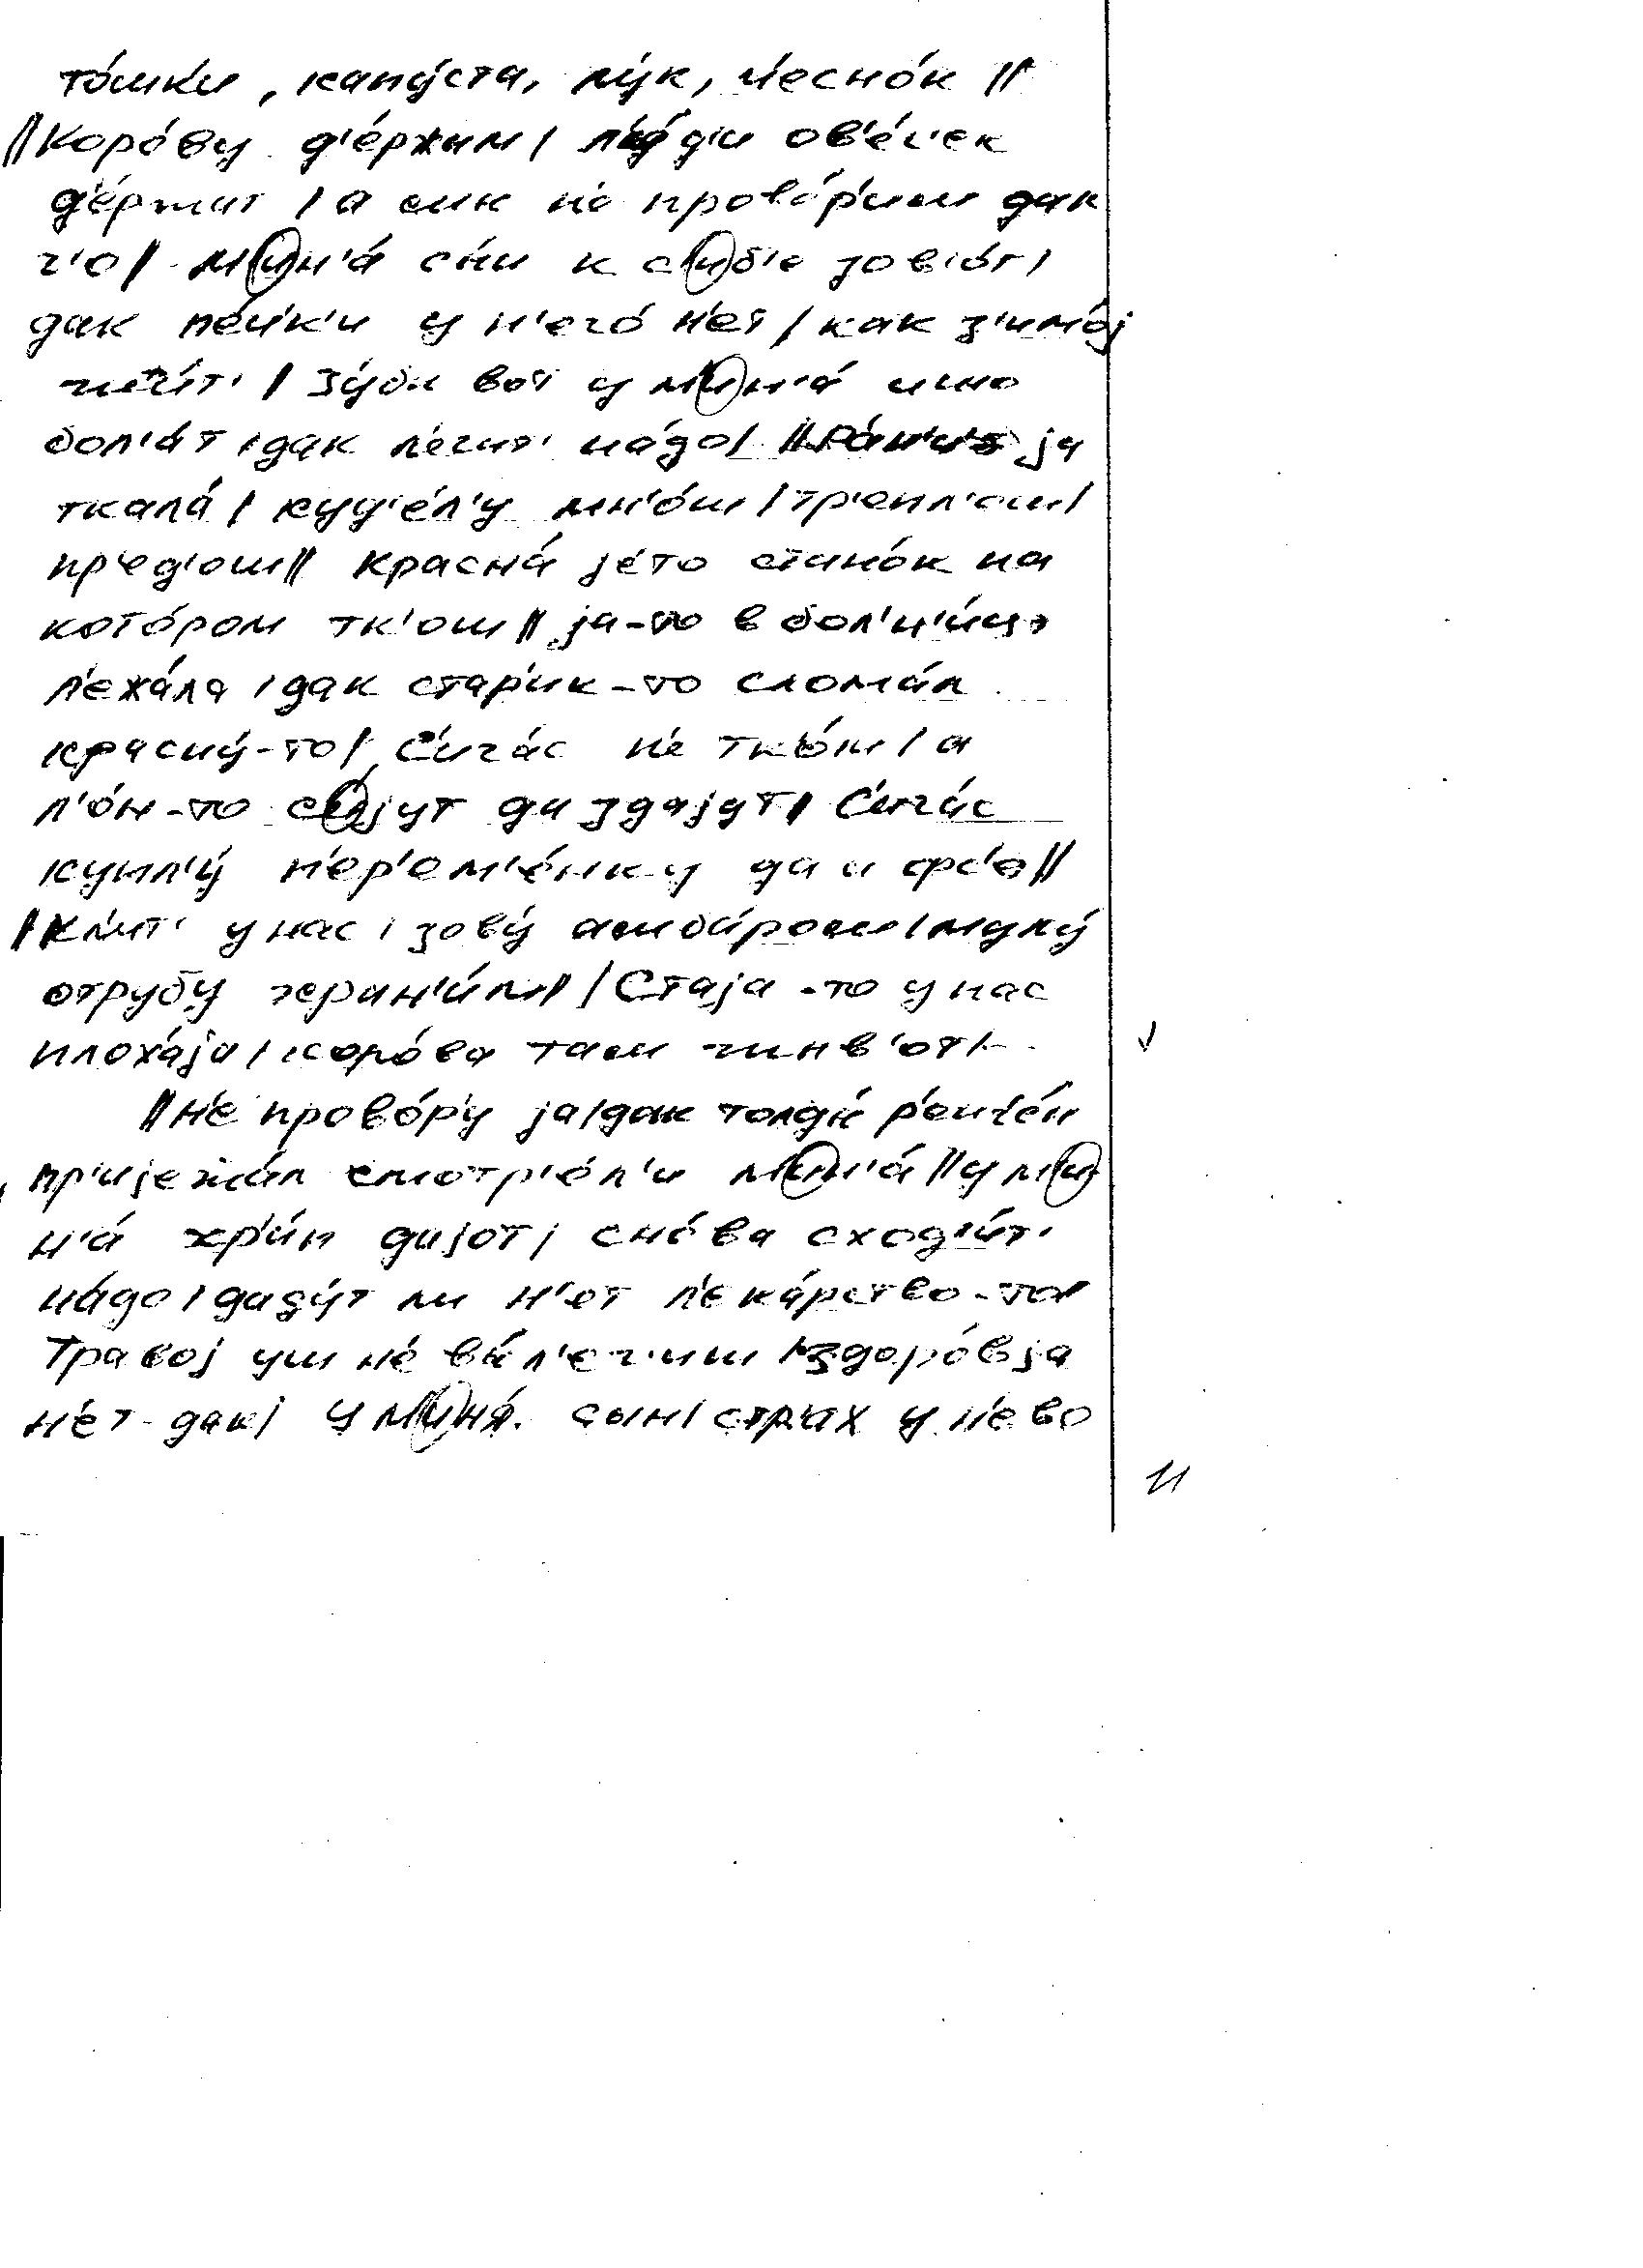 то́шк'и, капу́ста, лу́к, ч'есно́к //
// Коро́ву д'е́ржим / л'у́д'и ов'е́ч'ек
д'е́ржит / а
н'е прово́р'им дак
ч'о // м'ин'а́ сы́н к с'иб'е зов'о́т /
дак пе́ч'к'и у н'его́ н'ет / как з'имо́j
жы́т' / зу́бы вот у м'ин'а́
бол'а́т / дак л'еч'ит' на́до / // Ра́н'шэ jа
ткала́ / куд'е́л'у мн'о́ш / тр'епл'ош /
пр'ед'ош // красна́ jе́то стано́к на
кото́ром тк'ош // jа-то в бол'н'и́цэ
л'ежа́ла / дак стар'ик-то слома́л
красны́-то / С'ича́с н'е тк'о́ш / а
л'о́н-то с'иjут да здаjут // С'ича́с
купл'у́ п'ер'ем'е́нку да и фс'о //
// Кл'ит' у нас / зову́ амба́ром / муку́
отрубу храни́м // / Стаjа-то у нас
плоха́jа / коро́ва там жив'от /
// Н'е прово́р'у jа / дак толды́ р'ентге́н
пр'иjежа́л смотр'е́л'и м'ин'а́ // у м'и
н'а́ хри́п даjот / сно́ва сход'и́т'
на́до / даду́т ли н'ет л'ека́рство-то /
Травоj уш н'е вы́л'еч'иш / здоро́вjа
н'е́т дак / У м'ин'а́ сын / страх у н'ево
11